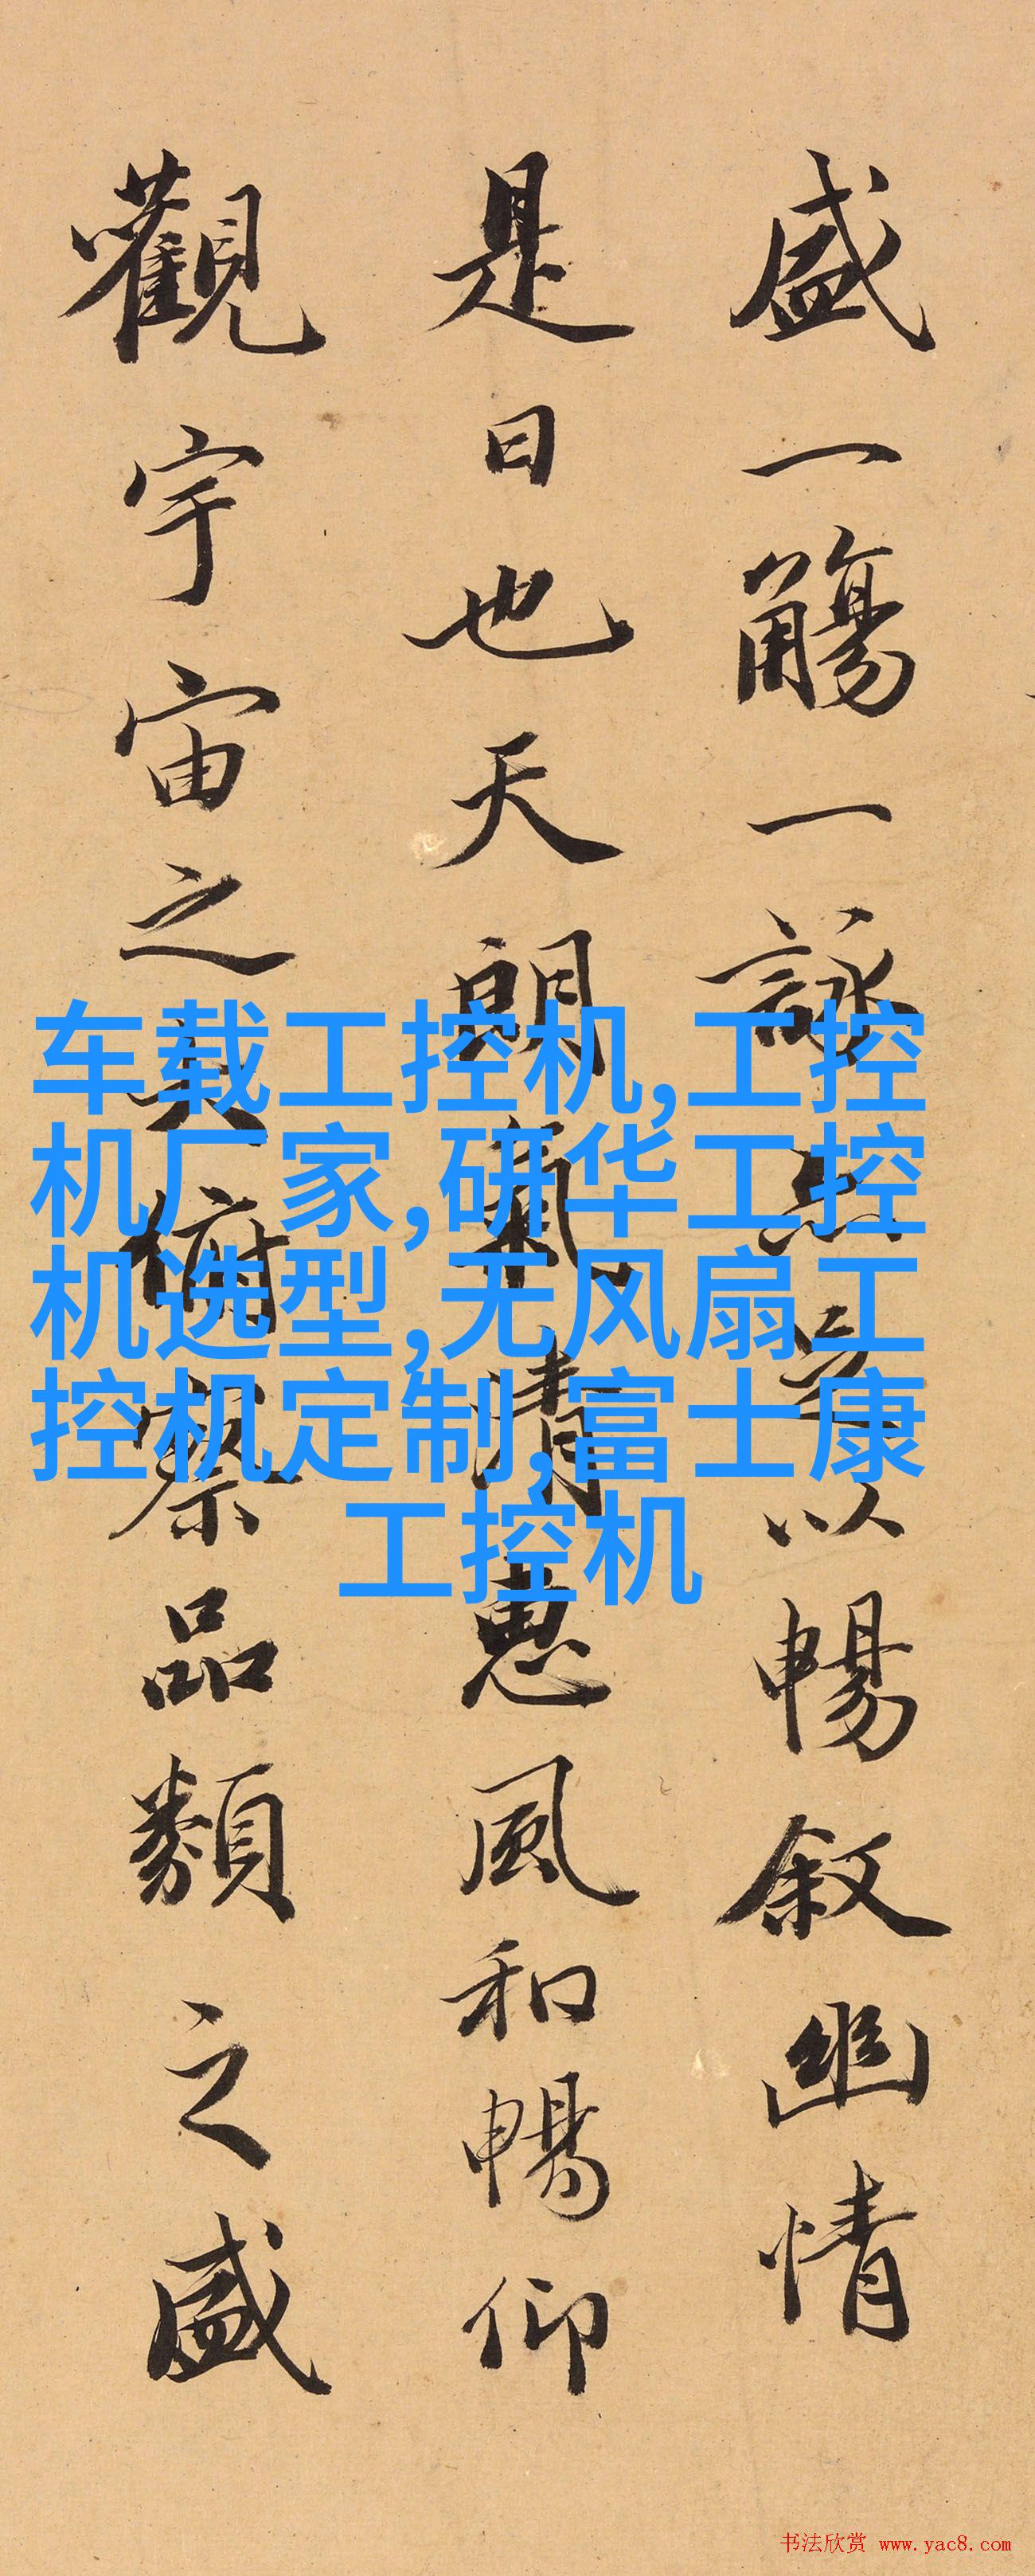 盛一觴一詠亦足以暢叙幽情
是日也天朗氣清惠風和暢仰
觀宇宙之大俯察品類之盛
车载工控机,工控
机厂家,研华工控
机选型,无风扇工
控机定制,富士康
工控机
书法欣赏 www.yac8.com